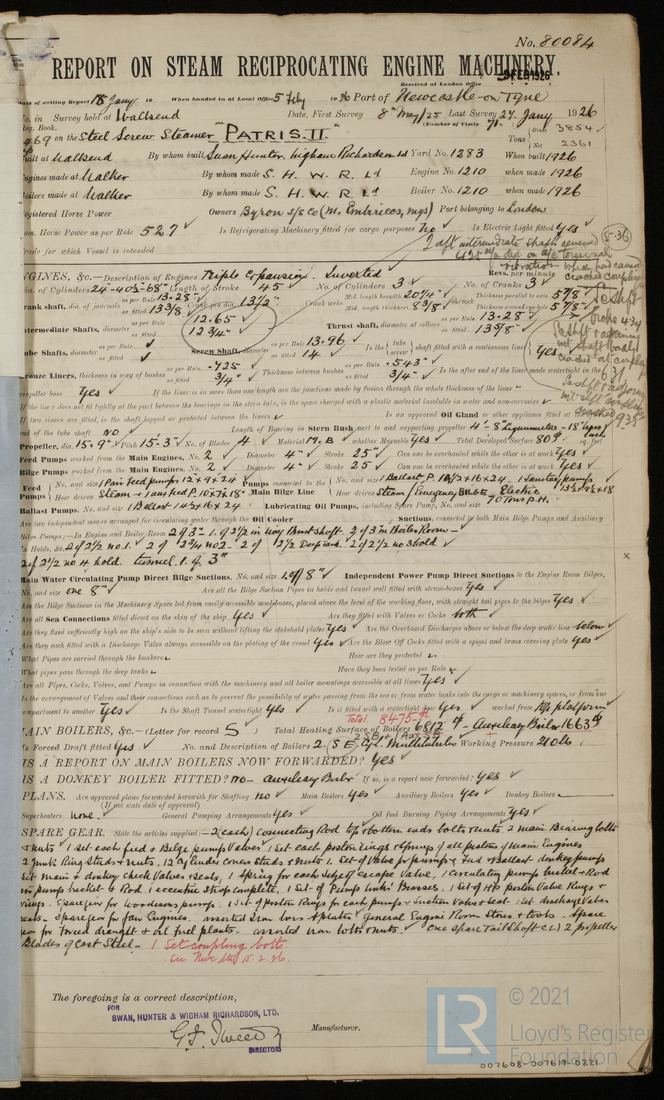 No. 80084
REPORT ON STEAM RECIPROCATING ENGINE MACHINERY.
Received at London Office 9 FEB 1926
Date of writing Report 18 Jany 19 When handed in at Local Office 5 Feby 1926 Port of Newcastle-on-Tyne
No. in Survey held at Wallsend Date, First Survey 8th May/25 Last Survey 27 Jany 1926
Reg. Book. (Number of Visits 71)
469 on the Steel Screw Steamer "PATRIS. II" Tons Gross 3854 Net 2361
Built at Wallsend By whom built Swan Hunter, Wigham Richardson Ld Yard No. 1283 When built 1926
Engines made at Walker By whom made S. H. W. R. Ld Engine No. 1210 when made 1926
Boilers made at Walker By whom made S. H. W. R. Ld Boiler No. 1210 when made 1926
Registered Horse Power Owners Byron S/S Co (M. Embiricos, mgs) Port belonging to London
Nom. Horse Power as per Rule 527 Is Refrigerating Machinery fitted for cargo purposes No Is Electric Light fitted Yes
Trade for which Vessel is intended
5.36
ENGINES, &c.—Description of Engines Triple Expansion. Inverted Revs. per minute
Dia. of Cylinders 24-40½-68" Length of Stroke 45 No. of Cylinders 3 No. of Cranks 3
Crank shaft, dia. of journals as per Rule 13.28" as fitted 13 3/8 Crank pin dia. 13½" Crank webs Mid. length breadth 20¼" Mid. length thickness 8 5/8" Thickness parallel to axis 5 7/8" Thickness around eyehole 5 7/8"
Intermediate Shafts, diameter as per Rule 12.65 as fitted 12¾" Thrust shaft, diameter at collars as per Rule 13.28" as fitted 13 5/8"
Tube Shafts, diameter as per Rule as fitted Screw Shaft, diameter as per Rule 13.96 as fitted 14 Is the tube screw shaft fitted with a continuous liner Yes
Bronze Liners, thickness in way of bushes as per Rule .725 as fitted ¾" Thickness between bushes as per Rule .543" as fitted ¾" Is the after end of the liner made watertight in the
propeller boss Yes If the liner is in more than one length are the junctions made by fusion through the whole thickness of the liner
If the liner does not fit tightly at the part between the bearings in the stern tube, is the space charged with a plastic material insoluble in water and non-corrosive
If two liners are fitted, is the shaft lapped or protected between the liners Is an approved Oil Gland or other appliance fitted at
end of the tube shaft No Length of Bearing in Stern Bush next to and supporting propeller 4'-8"
Propeller, dia. 15'-9" Pitch 15'-3" No. of Blades 4 Material M.B whether Moveable Yes Total Developed Surface 80 sq. feet
Feed Pumps worked from the Main Engines, No. 2 Diameter 4" Stroke 25" Can one be overhauled while the other is at work Yes
Bilge Pumps worked from the Main Engines, No. 2 Diameter 4" Stroke 25 Can one be overhauled while the other is at work Yes
Feed Pumps No. and size 1 Pair feed pumps 12 x 9 x 24 Pumps connected to the Main Bilge Line No. and size 1 Ballast P. 14½ x 16 x 24 1 Sanitary pump
How driven Steam + 1 aux feed P. 10 x 7 x 18" How driven Steam, Emergency Bilge Electric 70 Tons P.H.
Ballast Pumps, No. and size 1 Ballast 14½ x 16 x 24 Lubricating Oil Pumps, including Spare Pump, No. and size
Are two independent means arranged for circulating water through the Oil Cooler Suctions, connected to both Main Bilge Pumps and Auxiliary
Bilge Pumps;—In Engine and Boiler Room 2 of 3" - 1 of 2½ in way Thrust shaft. 2 of 3 in Boiler Room
In Holds, &c. 2 of 2½ no. 1. 2 of 2¾ no 2 - 2 of 2½ Deep tank. 2 of 2½ no 3 hold
2 of 2½ no 4 hold tunnel. 1 of 3"
Main Water Circulating Pump Direct Bilge Suctions, No. and size 1 of 8" Independent Power Pump Direct Suctions to the Engine Room Bilges,
No. and size one 8" Are all the Bilge Suction Pipes in holds and tunnel well fitted with strum-boxes Yes
Are the Bilge Suctions in the Machinery Space led from easily accessible mud-boxes, placed above the level of the working floor, with straight tail pipes to the bilges Yes
Are all Sea Connections fitted direct on the skin of the ship Yes Are they fitted with Valves or Cocks both
Are they fixed sufficiently high on the ship's side to be seen without lifting the stokehold plates Yes Are the Overboard Discharges above or below the deep water line below
Are they each fitted with a Discharge Valve always accessible on the plating of the vessel Yes Are the Blow Off Cocks fitted with a spigot and brass covering plate Yes
What Pipes are carried through the bunkers How are they protected
What pipes pass through the deep tanks Have they been tested as per Rule
Are all Pipes, Cocks, Valves, and Pumps in connection with the machinery and all boiler mountings accessible at all times Yes
Is the arrangement of Valves and their connections such as to prevent the possibility of water passing from the sea or from water tanks into the cargo or machinery spaces, or from one
compartment to another Yes Is the Shaft Tunnel watertight Yes Is it fitted with a watertight door Yes worked from Top platform
Total 8475
MAIN BOILERS, &c.—(Letter for record S) Total Heating Surface of Boilers 6812 - Auxiliary Boiler 1663
Is Forced Draft fitted Yes No. and Description of Boilers 2 S E Cyl. Multitubular Working Pressure 210 lbs
IS A REPORT ON MAIN BOILERS NOW FORWARDED? Yes
IS A DONKEY BOILER FITTED? No - auxiliary Boiler If so, is a report now forwarded? Yes
PLANS. Are approved plans forwarded herewith for Shafting No Main Boilers Yes Auxiliary Boilers Yes Donkey Boilers
(If not state date of approval)
Superheaters none. General Pumping Arrangements Yes Oil fuel Burning Piping Arrangements Yes
SPARE GEAR. State the articles supplied:— 2 (each) Connecting Rod top & bottom ends bolts & nuts. 2 main Bearing bolts
& nuts 1 set each feed & Bilge pumps Valves 1 Set each piston rings & springs of all pistons of main Engines
2 Junk Ring studs & nuts, 12 Cylinder covers studs & nuts 1 Set of Valves for pumps Feed & Ballast donkey pumps
set main & donkey Check Valves & seats, 1 Spring for each size of escape Valve, 1 Circulating pump bucket & Rod
pumps bucket & Rod 1 eccentric strap complete, 1 Set of Pumps links Brasses. 1 Set of HP piston Valve Rings &
springs. Spare gear for Woodesons pumps 1 Set of piston Rings for each pump & Suction Valve & seat. 1 set discharge Valves
seats - spare gear for fan Engines. assorted iron bars & plates general Engine Room Stores & tools. Spare
gear for forced draught & oil fuel plants. assorted iron bolts & nuts. One spare Tail Shaft (C L) 2 propeller
Blades of Cast Steel - 1 Set coupling bolts.
See Nwc ltr 15.2.26.
The foregoing is a correct description,
FOR
SWAN, HUNTER & WIGHAM RICHARDSON, LTD.
G. F. Tweedy
DIRECTORS
Manufacturer.
LR
© 2021
Lloyd's Register
Foundation
007608-007617-0221